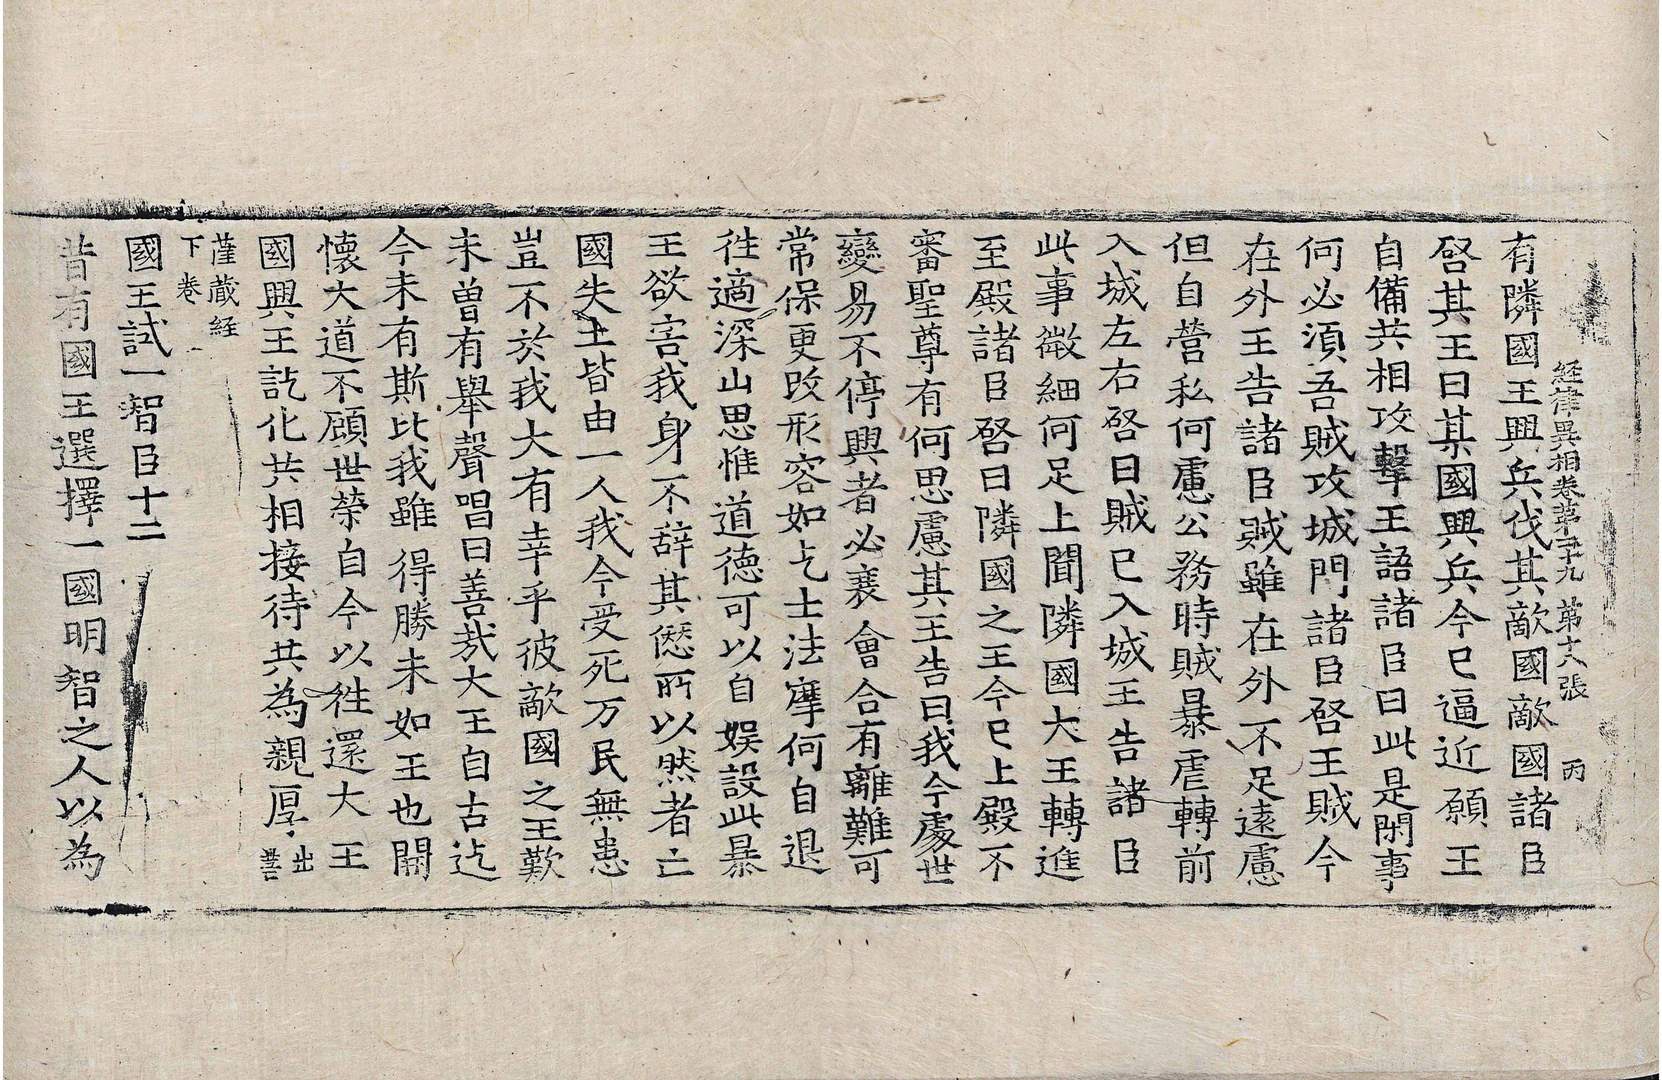 経律異相卷第二十九 第十八張 丙
有隣國王興兵伐其敵國敵國諸臣
啓其王曰某國興兵今已逼近願王
自備共相攻擊王語諸臣曰此是閑事
何必湏吾賊攻城門諸臣啓王賊今
在外王告諸臣賊雖在外不足遠慮
但自營私何慮公務時賊暴虐轉前
入城左右啓曰賊已入城王告諸臣
此事微細何足上聞隣國大王轉進
至殿諸臣啓曰隣國之王今已上殿不
審聖尊有何思慮其王告曰我今處世
變易不停興者必衰會合有離難可
常保更改形容如乞士法摩何自退
徃適深山思惟道德可以自娯設此暴
王欲害我身不辞其愆所以然者亡
國失土皆由一人我今受死万民無患
豈不於我大有幸乎彼敵國之王歎
未曽有舉聲唱曰善㢤大王自古迄
今未有斯比我雖得勝未如王也開
懐大道不顧世榮自今以徃還大王
國興王訖化共相接待共為親厚出菩
薩蔵経
下卷
國王試一智臣十二
昔有國王選擇一國明智之人以為